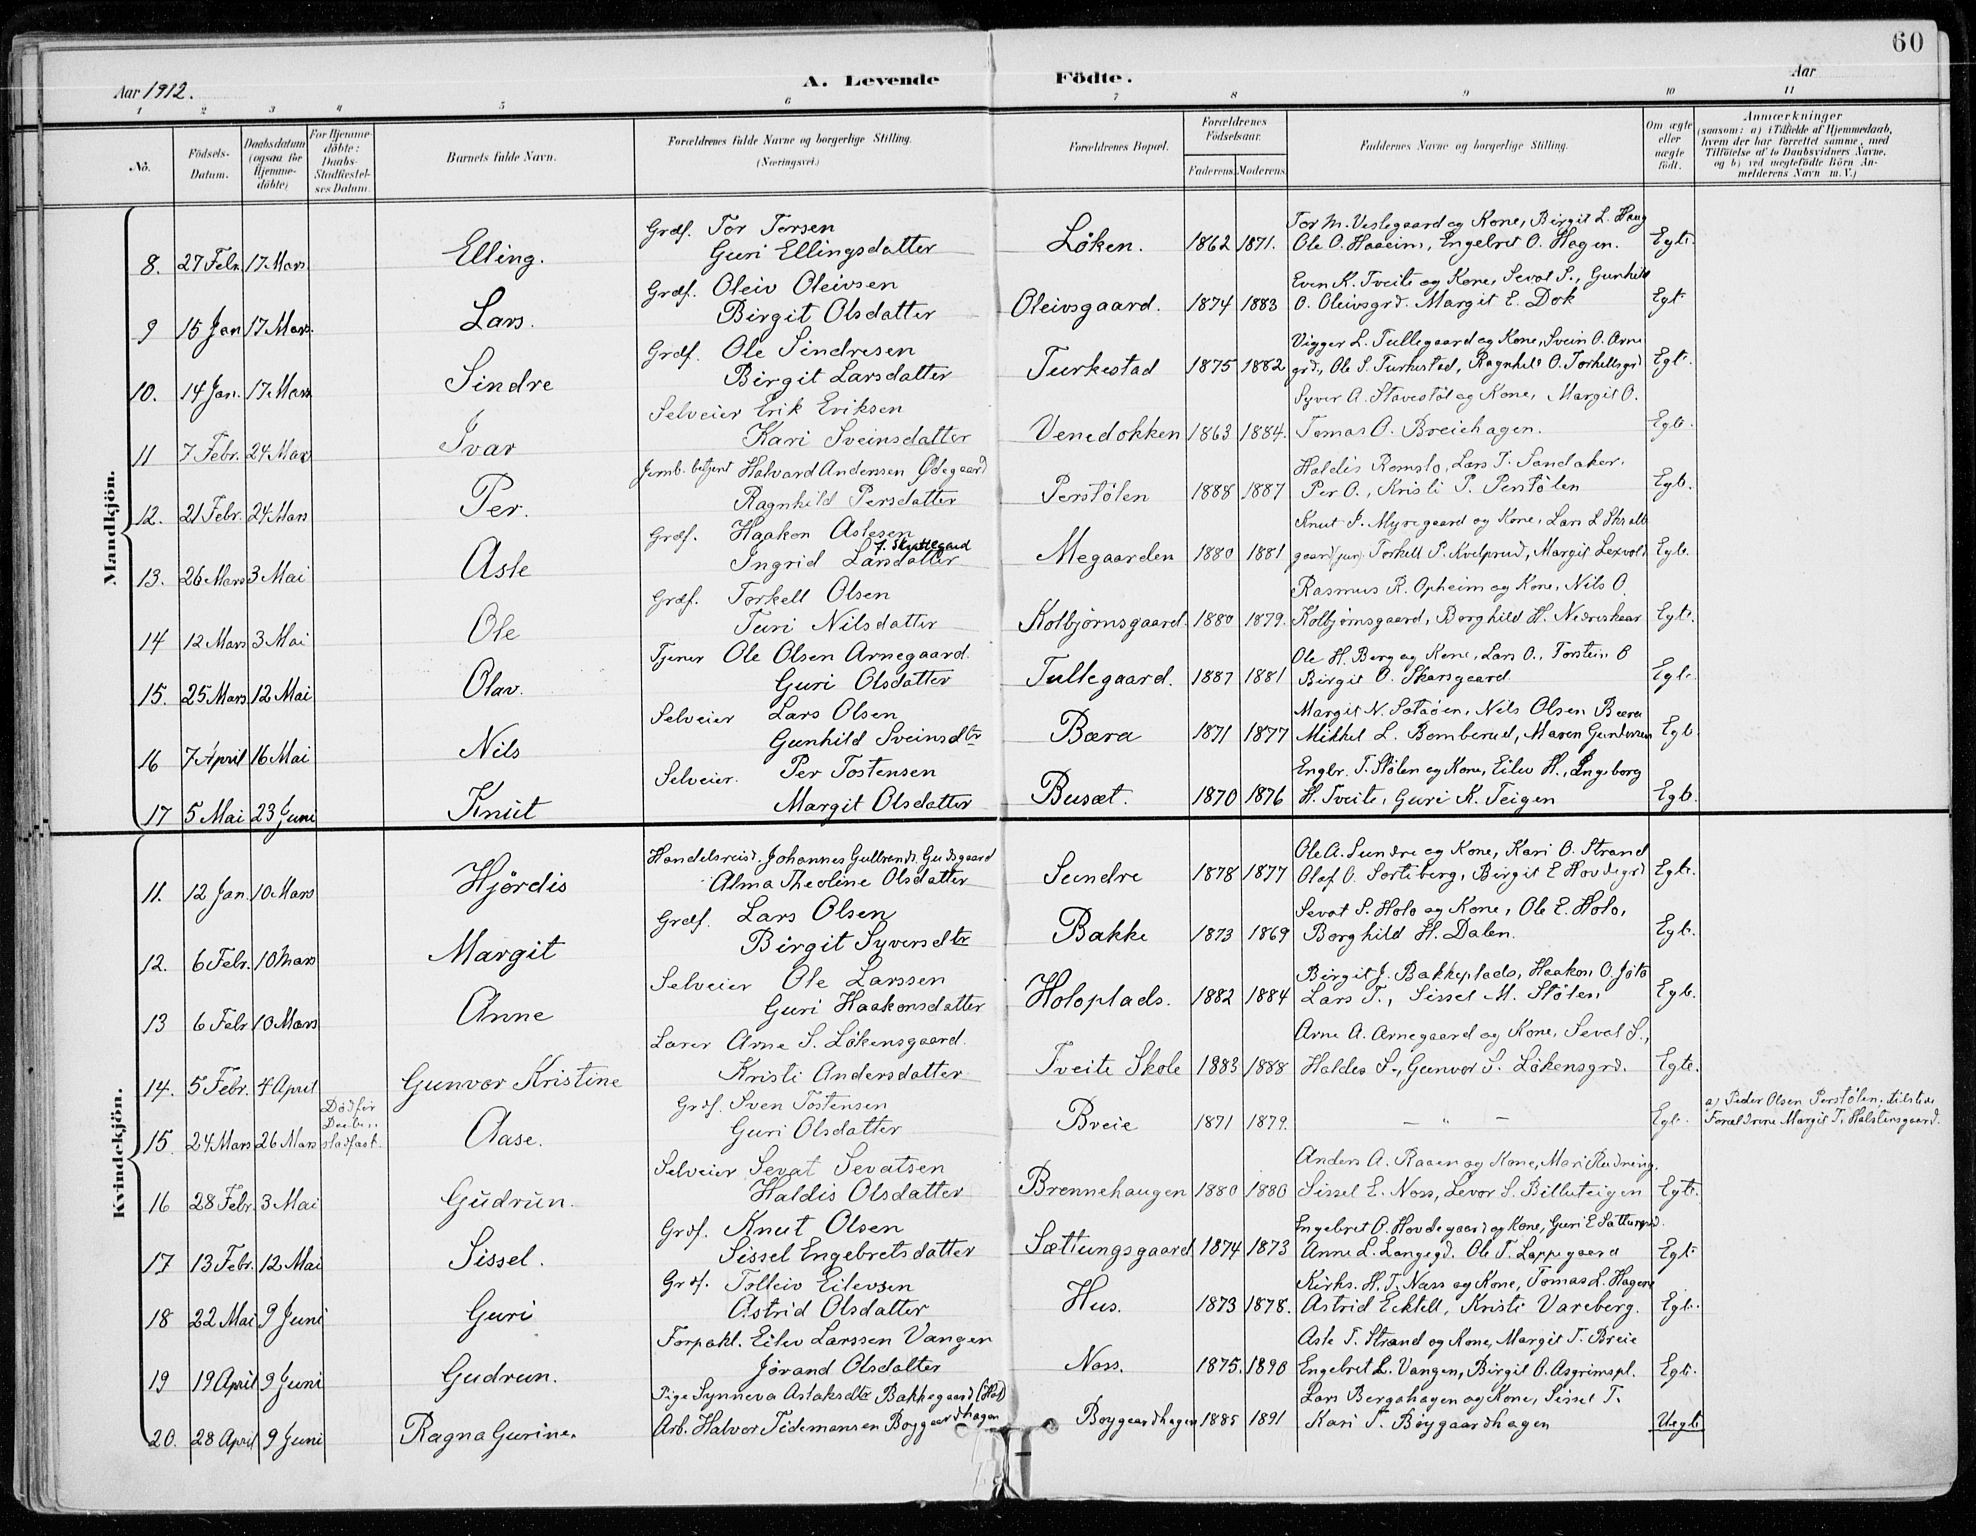 60
Aar 1912.
A. Levende Födte.
Aar
1 2 3 4 5 6 7 8 9 10 11
No.
Födsels-Datum.
Daabsdatum (ogsaa for Hjemmedöbte)
For Hjemmedöbte: Daabs-Stadfæstelses Datum.
Barnets fulde Navn.
Forældrenes fulde Navne og borgerlige Stilling. (Næringsvei.)
Forældrenes Bopæl.
Forældrenes Födselsaar.
Faderens. Moderens.
Faddernes Navne og borgerlige Stilling.
Om ægte eller uægte födt.
Anmærkninger (saasom: a) i Tilfælde af Hjemmedaab, hvem der har forrettet samme, med Tilföielse af to Daabsvidners Navne, og b) ved uægtefödte Börn Anmelderens Navn m. V.)
Mandkjön.
Grdf. Tor Torsen
Tor M. Veslegaard og Kone, Birgit L. Haug
8. 27 Febr. 17 Mars Elling. Guri Ellingsdatter Løken. 1862 1871. Ole O. Haaeim, Engebret O. Hagen. Egte.
Grdf. Oleiv Oleivsen
Even K. Tveite og Kone, Sevat S., Gunhild
9 15 Jan 17 Mars. Lars. Birgit Olsdatter Oleivsgaard. 1874 1883 O. Oleivsgrd. Margit E. Dok Egt.
Grdf. Ole Sindresen
Vigger L. Tullegaard og Kone, Svein O. Arne
10. 14 Jan. 17 Mars Sindre Birgit Larsdatter Turkestad 1875 1882 grd., Ole S. Turkestad, Ragnhild O. Torkellsgrd Egt.
Selveier Erik Eriksen
Syver A. Stavestøl og Kone, Margit O.
11 7 Febr. 24 Mars Ivar Kari Sveinsdatter Venedokken 1863 1884. Tomas O. Breiehagen. Egte.
Jernb. betjent Halvard Anderssen Ødegaard
Haldis Romslo, Lars T. Sandaker.
12. 21 Febr. 24 Mars Per. Ragnhild Persdatter Perstølen 1888 1887 Per O., Kristi P. Perstølen Egte.
Grdf. Haakon Aslesen
Knut P. Myregaard og Kone, Lars L Skratte
13. 26 Mars 3 Mai Asle Ingrid Larsdatter f. Skrattegard Megaarden 1880 1881 gaard (jun). Torkell P. Kvelprud, Margit Lexvold Egte.
Grdf. Torkell Olsen
Rasmus R. Opheim og Kone, Nils O.
14 12 Mars 3 Mai Ole Turi Nilsdatter Kolbjørnsgaard. 1880 1879. Kolbjørnsgaard, Borghild H. Nedreskaar Egte.
Tjener Ole Olsen Arnegaard.
Ole H. Berg og Kone, Lars O., Torstein O
15. 25 Mars 12 Mai Olav. Guri Olsdatter Tullegaard. 1887 1881 Birgit O. Skarsgaard. Egte.
Selveier Lars Olsen
Margit N. Sataøen, Nils Olsen Bæra
16 7 April 16 Mai Nils Gunhild Sveinsdtr Bæra 1871 1877 Mikkel L. Bomberud, Maren Gundersen Egt.
Selveier. Per Tostensen
Engbr. T. Stølen og Kone, Eilev H., Ingeborg
17 5 Mai 23 Juni Knut Margit Olsdatter Busæt. 1870 1876 H. Tveite, Guri K. Teigen Egte.
Kvindekjön.
Handelsreisd. Johannes Gulbrands. Gudsgaard
Ole A. Sundre og Kone, Kari O. Strand
11. 12 Jan. 10 Mars Hjørdis Alma Theoline Olsdatter Sundre 1878 1877 Olaf O. Sorteberg, Birgit E Hovdegrd Egte.
Grdf. Lars Olsen
Sevat S. Holo og Kone, Ole E. Holo,
12. 6 Febr. 10 Mars Margit Birgit Syversdtr Bakke 1873 1869 Borghild H. Dalen. Egt.
Selveier Ole Larssen
Birgit J. Bakkeplads, Haakon O. Jøto
13 6 Febr 10 Mars Anne Guri Haakonsdatter Holoplads. 1882 1884 Lars T., Sissel M. Stølen Egte.
Lærer Arne S. Løkensgaard.
Arne A. Arnegaard og Kone, Sevat S.,
14. 5 Febr. 4 April Gunvor Kristine Kristi Andersdatter Tveite Skole 1883 1888 Haldis S., Gunvor S. Løkensgrd. Egte.
Grdf. Sven Tostensen
15. 24 Mars 26 Mars Død før Daabs. stadfæst. Aase. Guri Olsdatter Breie 1871 1879. — " — Egt. a) Peder Olsen Perstølen; tilstede Forældrene Margit T. Halstensgaard.
Selveier Sevat Sevatsen
Anders A. Raaen og Kone, Mari Rudningen
16 28 Febr. 3 Mai Gudrun. Haldis Olsdatter Brennehaugen 1880 1880 Sissel E. Noss, Levor S. Billuteigen Egte.
Grdf. Knut Olsen
Engebret O. Hovdegaard og Kone, Guri E Sattungrd.
17 13 Febr. 12 Mai Sissel. Sissel Engebretsdatter Sættungsgaard 1874 1873 Anne L. Langegd. Ole T. Lappegaard Egt.
Grdf. Tolleiv Eilevsen
Kirks. H. T. Næss og Kone, Tomas L. Hagen
18 22 Mai 9 Juni Guri Astrid Olsdatter Hus. 1873 1878. Astrid Ecktell, Kristi Vareberg. Egte.
Forpakt. Eilev Larssen Vangen
Asle T. Strand og Kone, Margit T. Breie
19 19 April 9 Juni Gudrun. Jørand Olsdatter Noss. 1875. 1890 Engebret L. Vangen, Birgit O. Asgrimspl. Egte.
Pige Synneva Aslaksdtr Bakkegaard (Hol)
Lars Bergahagen og Kone, Sissel T.
20. 28 April 9 Juni Ragna Gurine. Arb. Halvor Tidemansen Bøygaardhagen Bøygaardhagen 1885 1891 Kari T. Bøygaardhagen Uegte